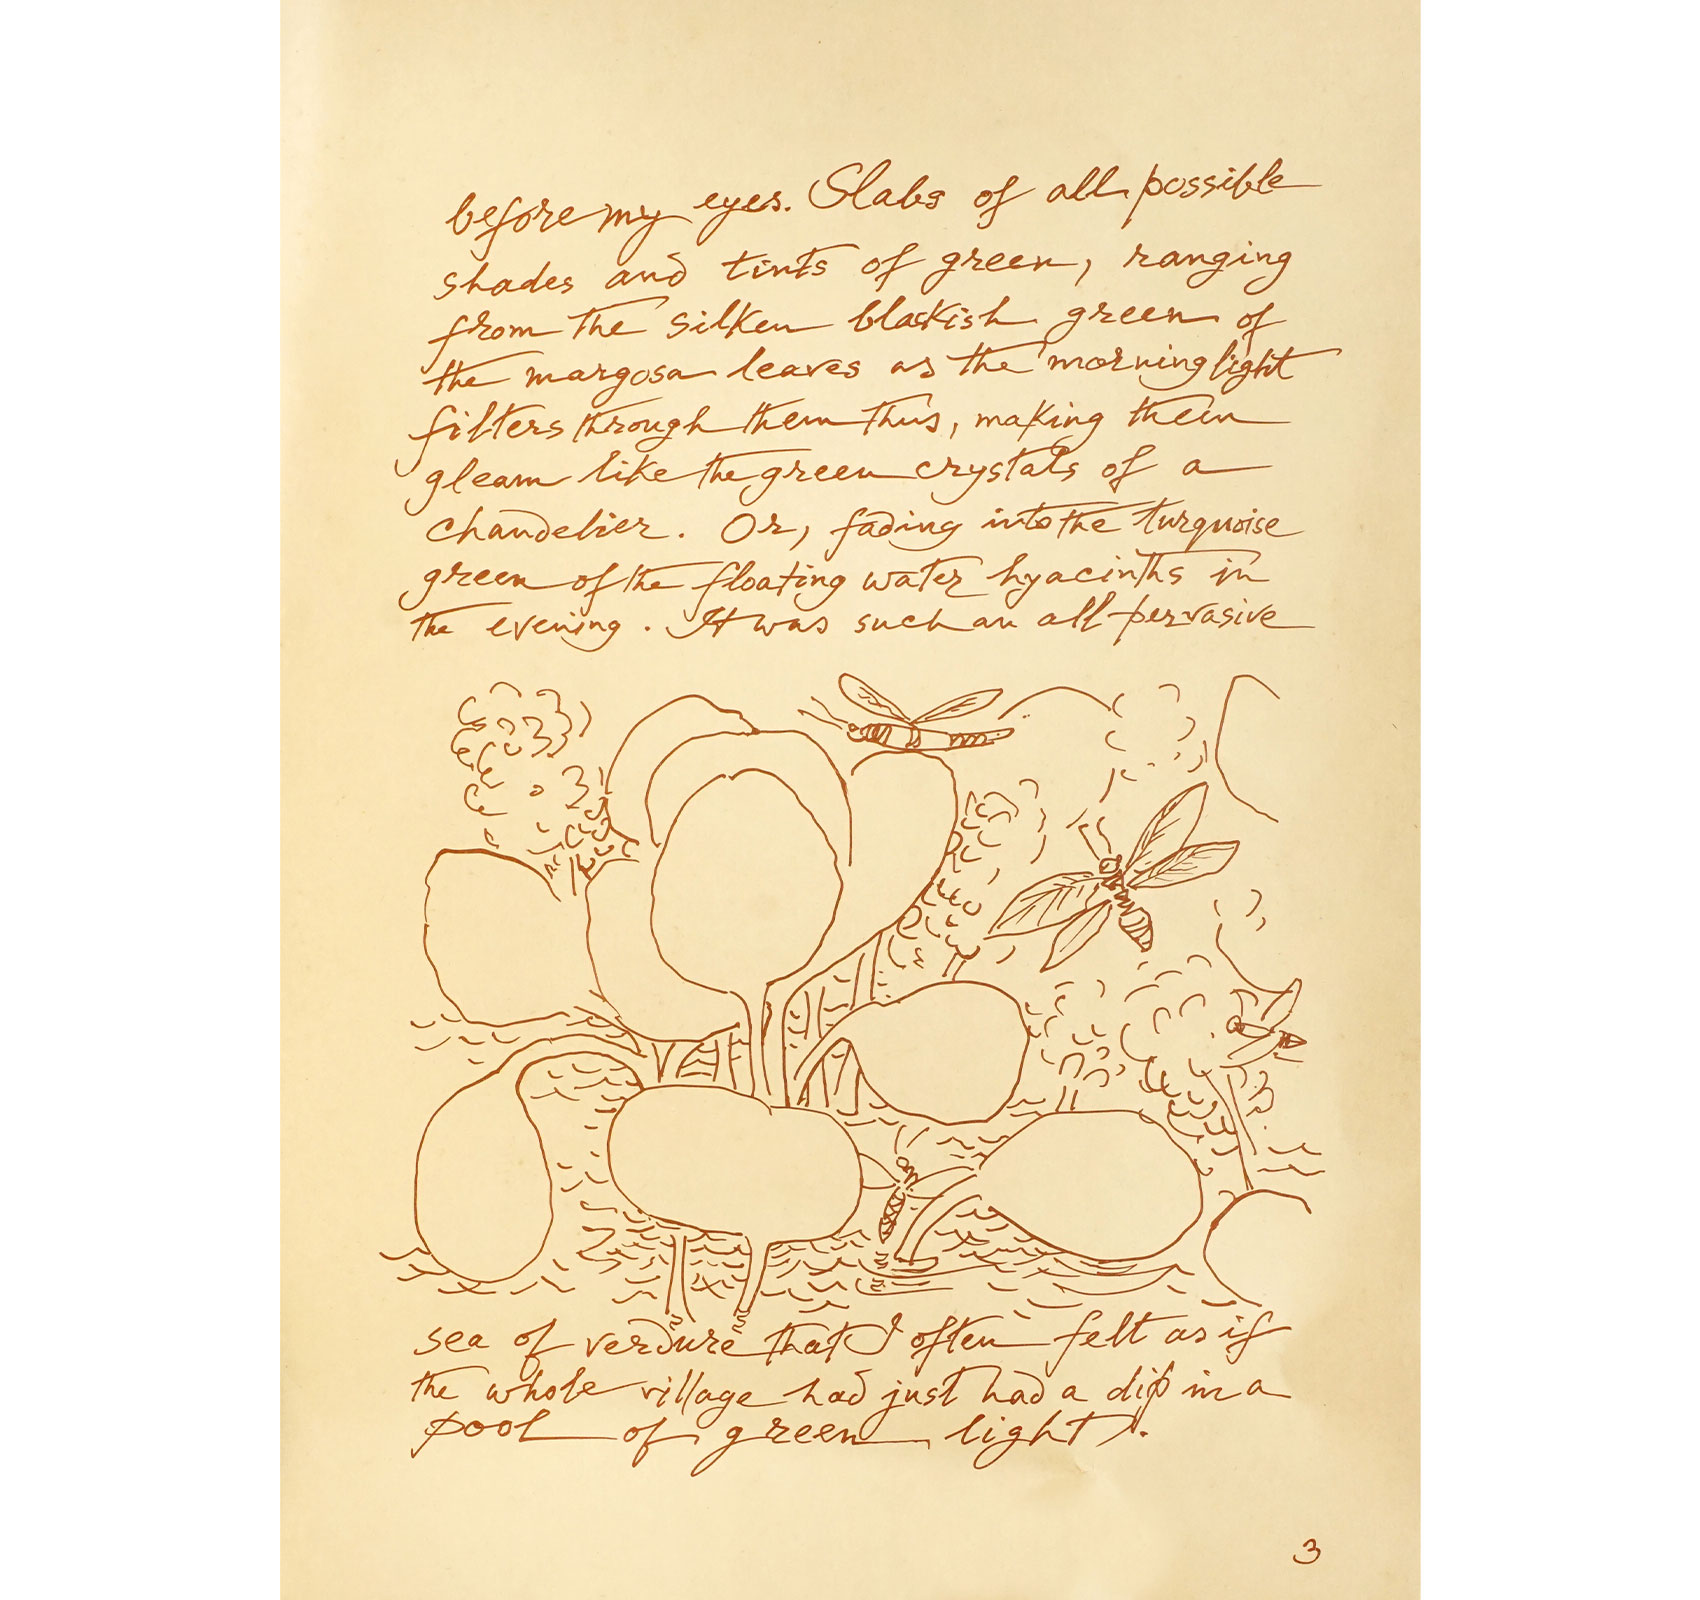 before my eyes. Slabs of all possible
shades and tints of green, ranging
from the silken blackish green of
the margosa leaves as the morning light
filters through them thus, making them
gleam like the green crystals of a
chandelier. Or, fading into the turquoise
green of the floating water hyacinths in
the evening. It was such an all-pervasive
sea of verdure that I often felt as if
the whole village had just had a dip in a
pool of green light.
3